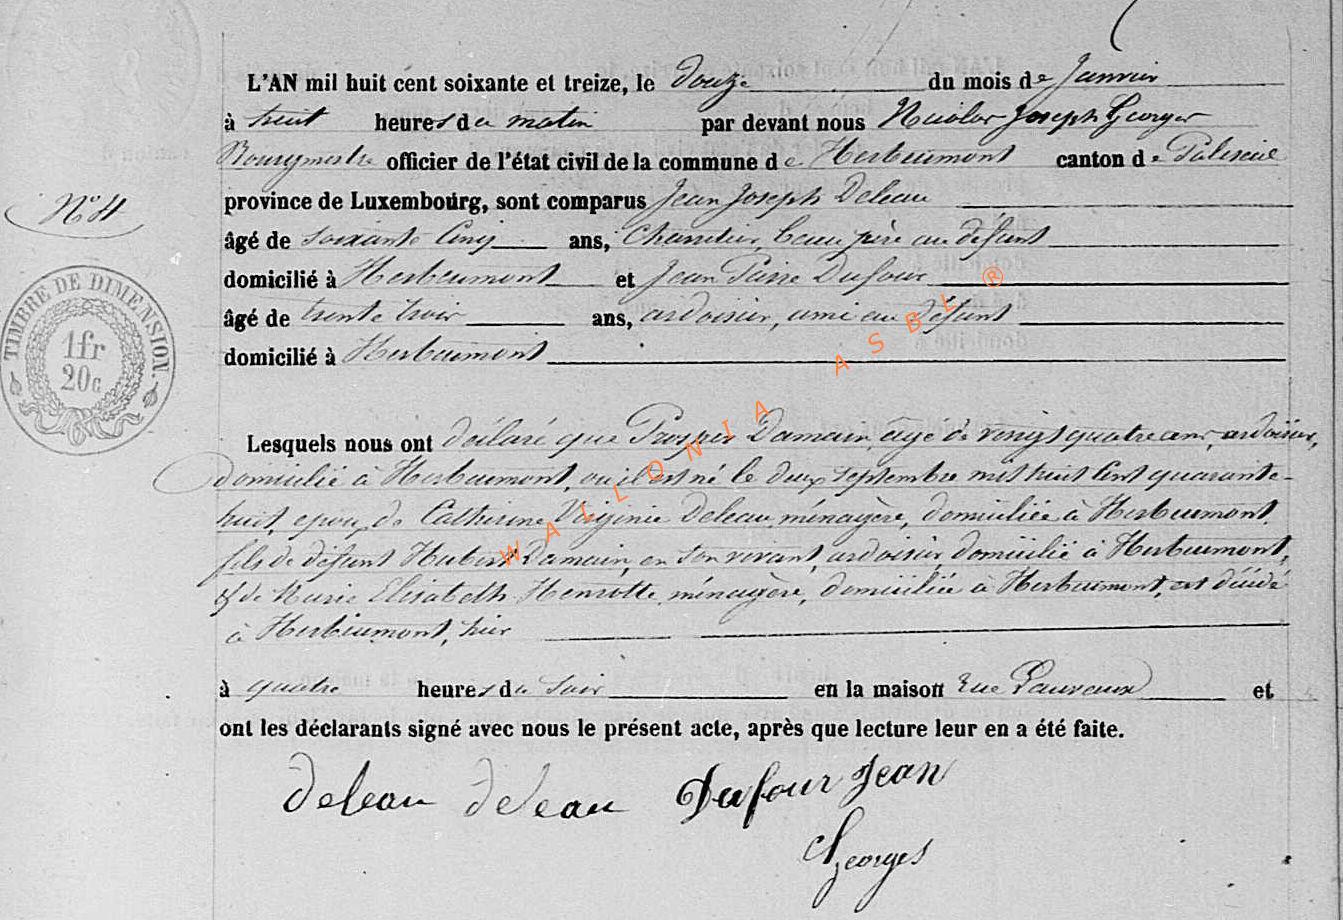 L'AN mil huit cent soixante et treize, le douze du mois de Janvier
à huit heures du matin par devant nous Nicolas Joseph Georges
Bourgmestre officier de l'état civil de la commune de Herbeumont canton de Paliseul
N° 4
province de Luxembourg, sont comparus Jean Joseph Deleau
âgé de soixante Cinq ans, Charretier, beau père au défunt
domicilié à Herbeumont et Jean Pierre Dufour
âgé de trente trois ans, ardoisier, ami au défunt
domicilié à Herbeumont
TIMBRE DE DIMENSION
1 fr
20 c
Lesquels nous ont déclaré que Prosper Damain, agé de vingt quatre ans, ardoisier,
domicilié à Herbeumont, où il est né le deux septembre mil huit cent quarante-
huit, epoux de Catherine Virginie Deleau, ménagère, domiciliée à Herbeumont,
fils de défunt Hubert Damain, en son vivant, ardoisier, domicilié à Herbeumont,
& de Marie Elisabeth Henrotte, ménagère, domiciliée à Herbeumont, est décédé
à Herbeumont, hier
à quatre heures du soir en la maison Rue et
ont les déclarants signé avec nous le présent acte, après que lecture leur en a été faite.
deleau deleau Dufour Jean
Georges
WALLONIA ASBL ®